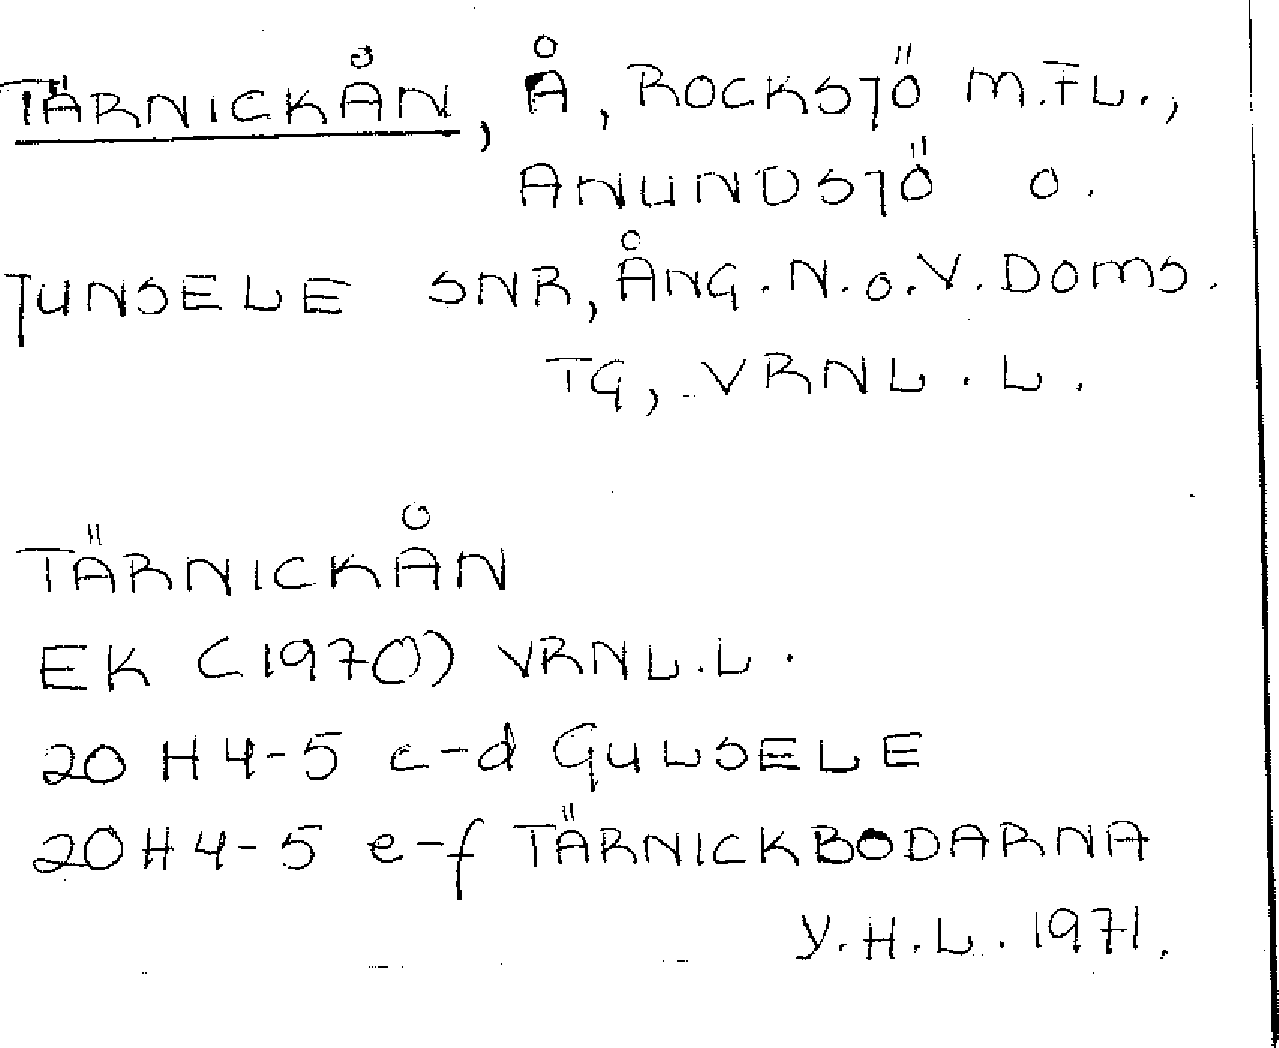 TÄRNICKÅN, Å, ROCKSJÖ M.FL.,
ANUNDSJÖ O.
JUNSELE SNR, ÅNG. N.O.V. DOMS.
TG, VRNL. L.
TÄRNICKÅN
EK (1970) VRNL.L.
20 H 4-5 c-d GULSELE
20 H 4-5 e-f TÄRNICKBODARNA
Y.H.L. 1971.